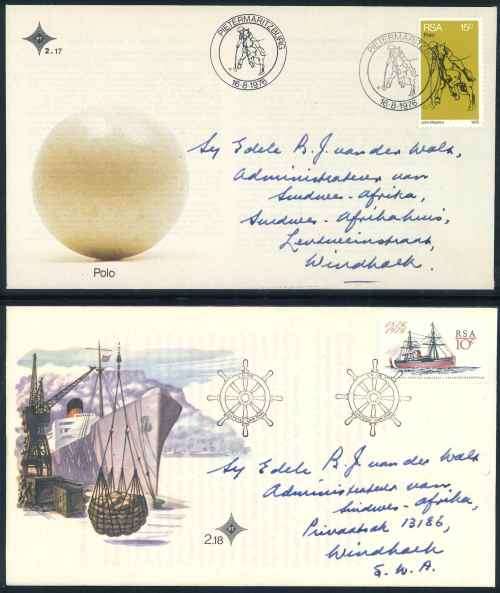 2.17
PIETERMARITZBURG
16·8·1976
PIETERMARITZBURG
16·8·1976
RSA 15c
Polo
1976
Sy Edele B. J. van der Walt,
Administrateur van
Suidwes-Afrika,
Suidwes-Afrikahuis,
Leutweinstraat,
Windhoek.
Polo
RSA
10c
Sy Edele B. J. van der Walt
Administrateur van
Suidwes-Afrika,
Privaatsak 13186,
Windhoek
S.W.A.
2.18